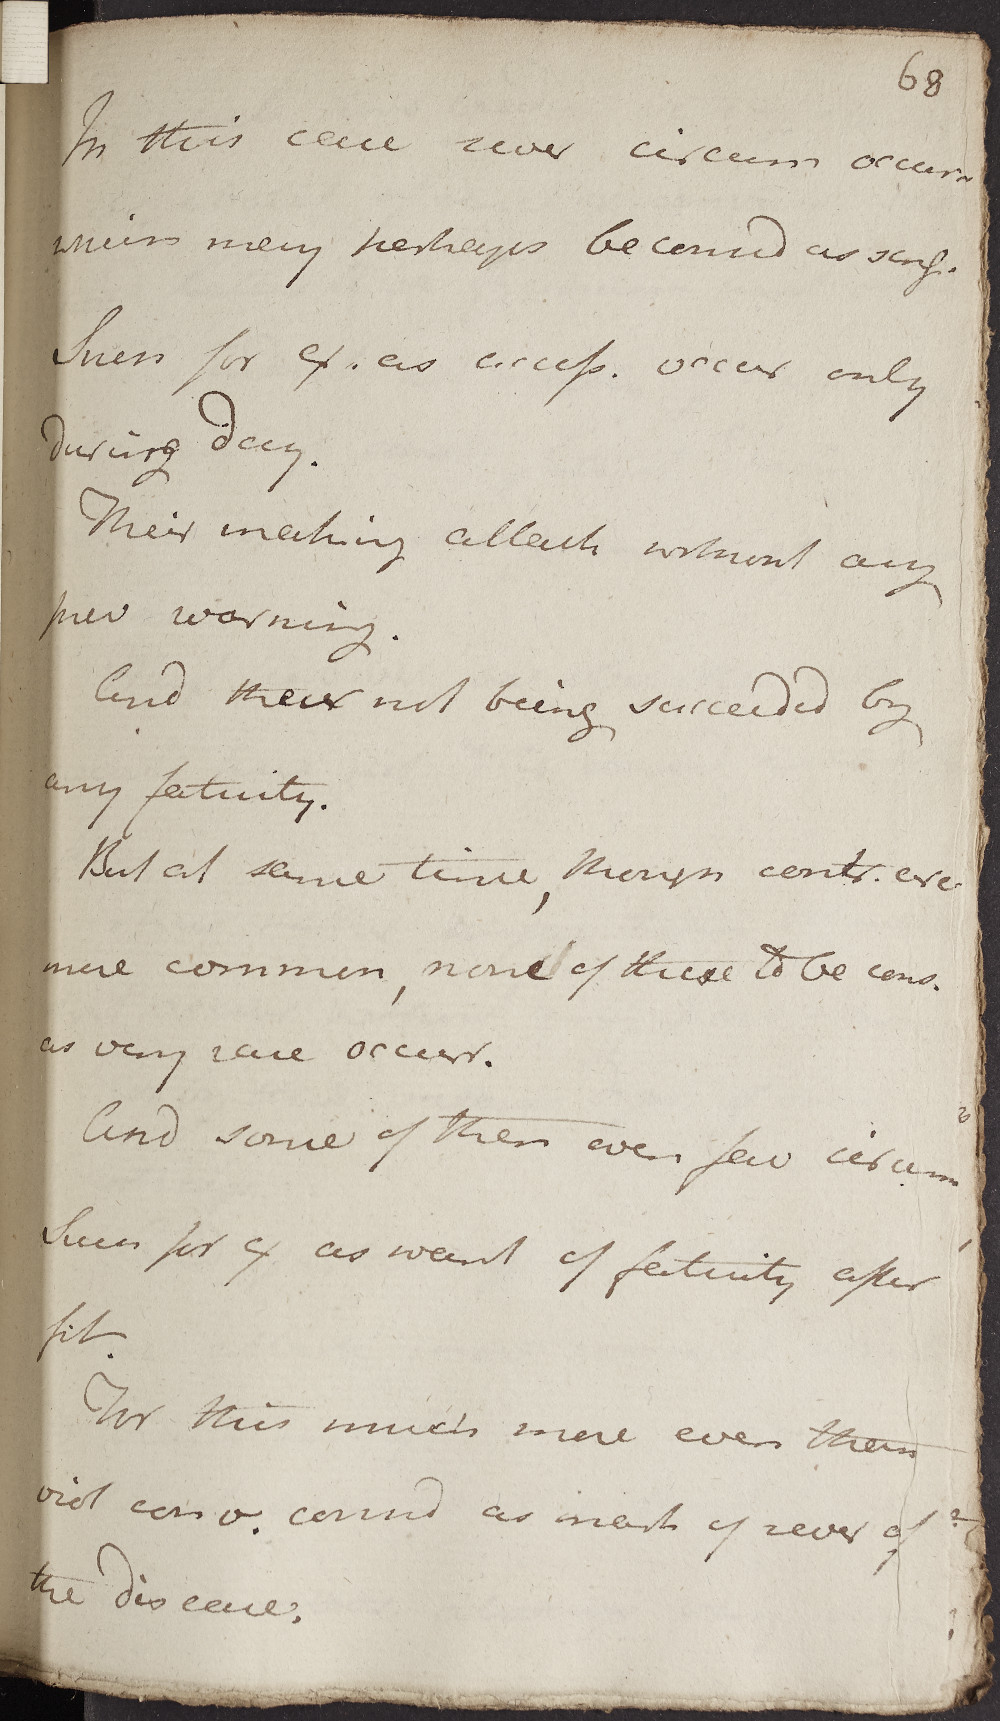 68
In this case sever circum occurr
which may perhaps be consid as sing.
Such for ex. as access. occur only
during day.
Their making attack without any
prev warning.
And their not being succeeded by
any fatuity.
But at same time, though contr. are
more common, none of these to be cons.
as very rare occurr.
And some of them even fav circum
Such for ex as want of fatuity after
fit.
For this much more even than
viol conv. consid as mark of sever of
the disease.